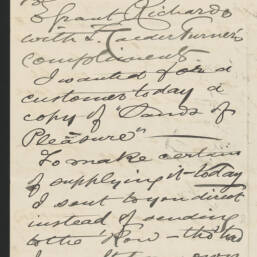 Grant Richards
with
compliments
I wanted for a
customer today a
copy of "Sands of
Pleasure"
To make certain
of supplying it today
I sent to you direct
instead of sending
to the "Row - tho' had